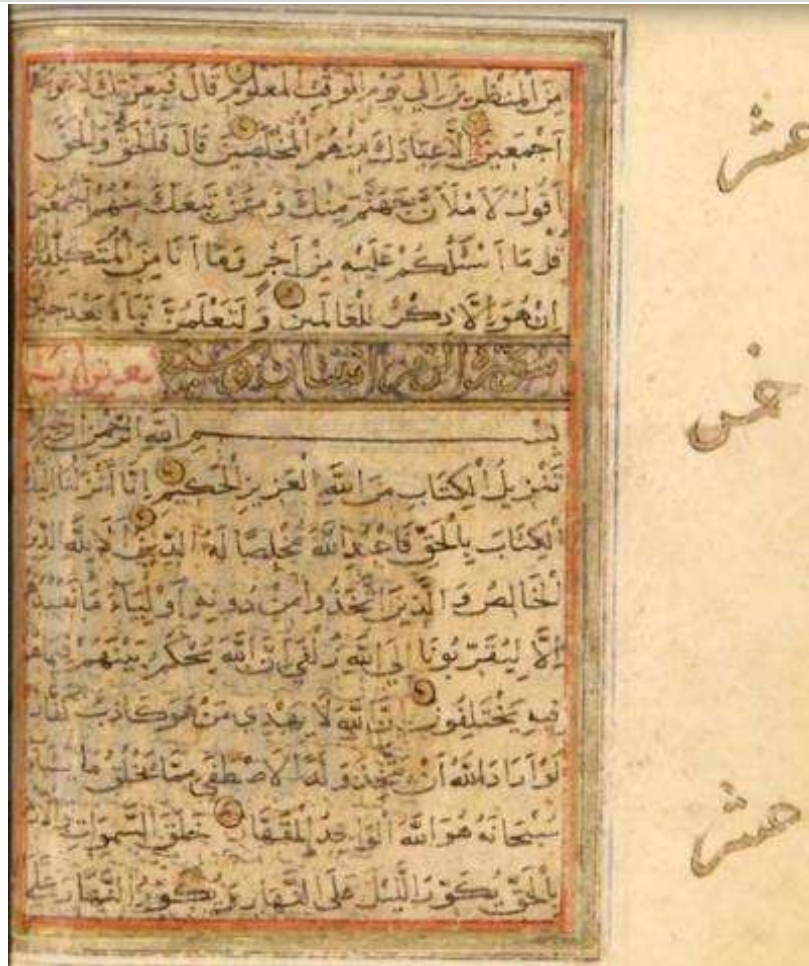 مِنَ الْمُنْظَرِينَ إِلَي يَوْمِ الْوَقْتِ الْمَعْلُومِ قَالَ فَبِعِزَّتِكَ لَاُغْوِيَنَّهُمْ
اَجْمَعِينَ اِلَّا عِبَادَكَ مِنْهُمُ الْمُخْلَصِينَ قَالَ فَالْحَقُّ وَالْحَقَّ
اَقُولُ لَاَمْلَأَنَّ جَهَنَّمَ مِنْكَ وَمِمَّنْ تَبِعَكَ مِنْهُمْ اَجْمَعِينَ
قُلْ مَا اَسْئَلُكُمْ عَلَيْهِ مِنْ اَجْرٍ وَمَا اَنَا مِنَ الْمُتَكَلِّفِينَ
اِنْ هُوَ اِلَّا ذِكْرٌ لِلْعَالَمِينَ وَلَتَعْلَمُنَّ نَبَأَهُ بَعْدَ حِينٍ
سورة الزمر
بِسْمِ اللَّهِ الرَّحْمٰنِ الرَّحِيمِ
تَنْزِيلُ الْكِتَابِ مِنَ اللَّهِ الْعَزِيزِ الْحَكِيمِ اِنَّا اَنْزَلْنَا اِلَيْكَ
الْكِتَابَ بِالْحَقِّ فَاعْبُدِ اللَّهَ مُخْلِصًا لَهُ الدِّينَ اَلَا لِلَّهِ الدِّينُ
الْخَالِصُ وَالَّذِينَ اتَّخَذُوا مِنْ دُونِهِ اَوْلِيَاءَ مَا نَعْبُدُهُمْ
اِلَّا لِيُقَرِّبُونَا اِلَي اللَّهِ زُلْفَي اِنَّ اللَّهَ يَحْكُمُ بَيْنَهُمْ فِيمَا هُمْ
فِيهِ يَخْتَلِفُونَ اِنَّ اللَّهَ لَا يَهْدِي مَنْ هُوَ كَاذِبٌ كَفَّارٌ
لَوْ اَرَادَ اللَّهُ اَنْ يَتَّخِذَ وَلَدًا لَاصْطَفَي مِمَّا يَخْلُقُ مَا يَشَاءُ
سُبْحَانَهُ هُوَ اللَّهُ الْوَاحِدُ الْقَهَّارُ خَلَقَ السَّمٰوَاتِ وَالْاَرْضَ
بِالْحَقِّ يُكَوِّرُ اللَّيْلَ عَلَي النَّهَارِ وَيُكَوِّرُ النَّهَارَ عَلَي
عشر
خمس
عشر